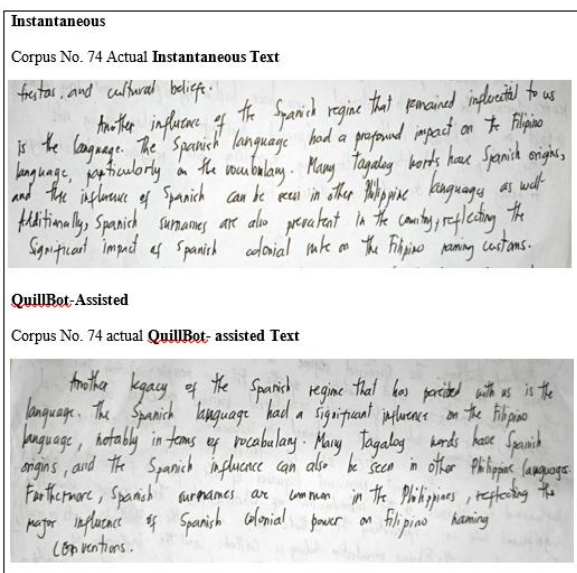 Instantaneous
Corpus No. 74 Actual Instantaneous Text
fiestas, and cultural beliefs.
Another influence of the Spanish regime that remained influential to us
is the language. The Spanish language had a profound impact on the Filipino
language, particularly on the vocabulary. Many Tagalog words have Spanish origins,
and the influence of Spanish can be seen in other Philippine languages as well.
Additionally, Spanish surnames are also prevalent in the country, reflecting the
Significant impact of Spanish colonial rule on the Filipino naming customs.
QuillBot-Assisted
Corpus No. 74 actual QuillBot- assisted Text
Another legacy of the Spanish regime that has persisted with us is the
language. The Spanish language had a significant influence on the Filipino
language, notably in terms of vocabulary. Many Tagalog words have Spanish
origins, and the Spanish influence can also be seen in other Philippine languages.
Furthermore, Spanish surnames are common in the Philippines, reflecting the
major influence of Spanish colonial power on Filipino naming
conventions.